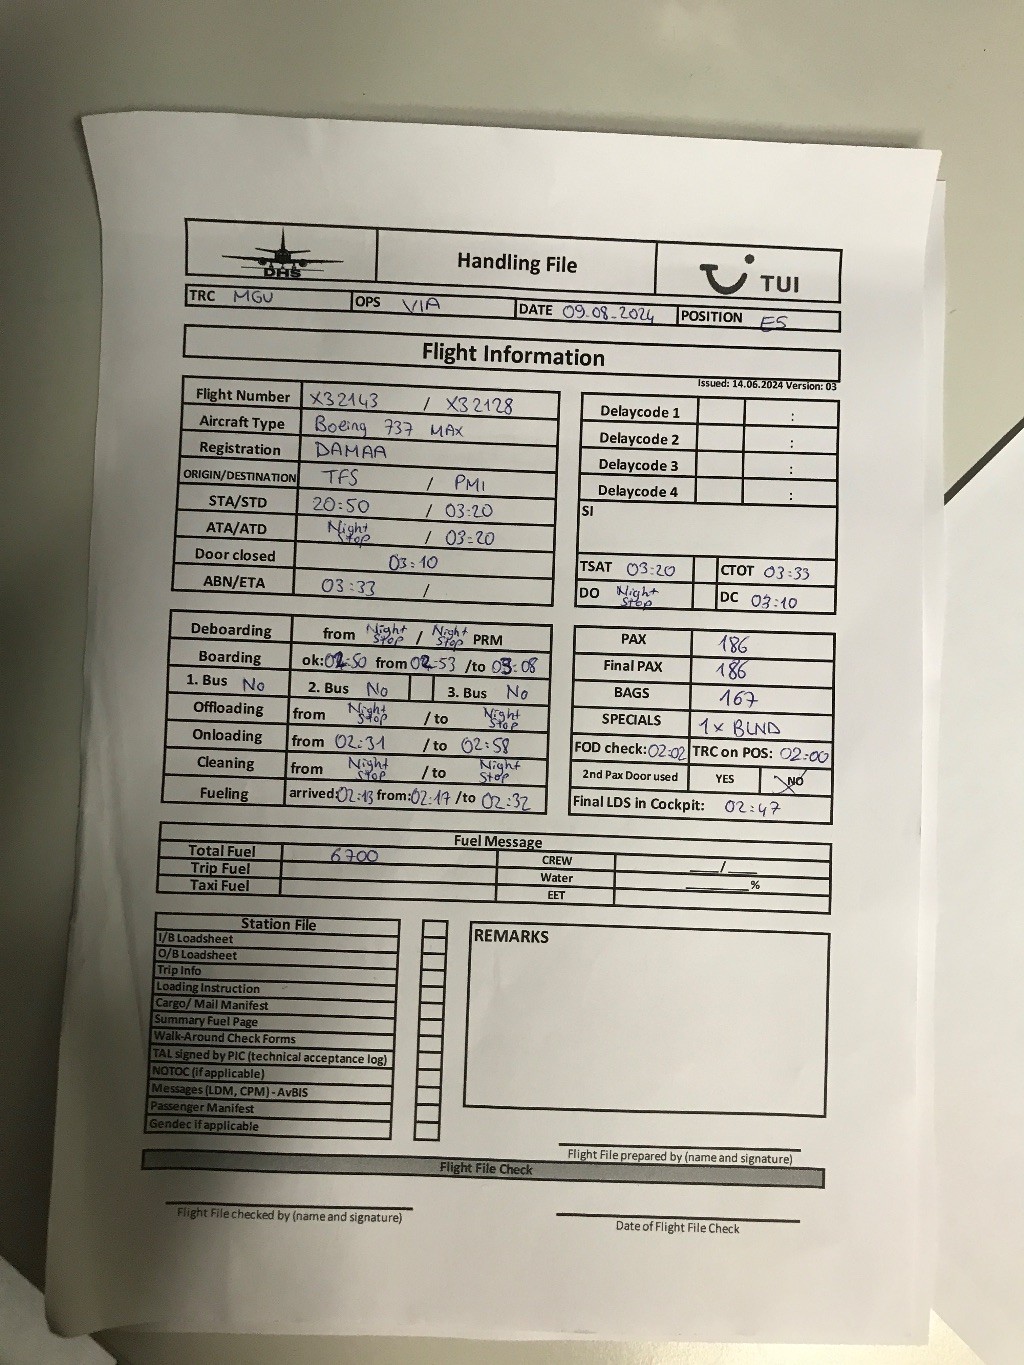 DHS Handling File TUI
TRC MGU OPS VIA DATE 09.08.2024 POSITION E5
Flight Information
Issued: 14.06.2024 Version: 03
Flight Number X32143 / X32128
Aircraft Type Boeing 737 MAX
Registration DAMAA
ORIGIN/DESTINATION TFS / PMI
STA/STD 20:50 / 03:20
ATA/ATD Night Stop / 03:20
Door closed 03:10
ABN/ETA 03:33 /
Delaycode 1 :
Delaycode 2 :
Delaycode 3 :
Delaycode 4 :
SI
TSAT 03:20 CTOT 03:33
DO Night Stop DC 03:10
Deboarding from Night Stop / Night Stop PRM
Boarding ok:02:50 from 02:53 /to 03:08
1. Bus No 2. Bus No 3. Bus No
Offloading from Night Stop / to Night Stop
Onloading from 02:31 / to 02:58
Cleaning from Night Stop / to Night Stop
Fueling arrived:02:13 from:02:17 /to 02:32
PAX 186
Final PAX 186
BAGS 167
SPECIALS 1x BLND
FOD check:02:02 TRC on POS: 02:00
2nd Pax Door used YES NO
Final LDS in Cockpit: 02:47
Fuel Message
Total Fuel 6700 CREW ___/___
Trip Fuel Water ______%
Taxi Fuel EET
Station File
I/B Loadsheet
O/B Loadsheet
Trip Info
Loading Instruction
Cargo/ Mail Manifest
Summary Fuel Page
Walk-Around Check Forms
TAL signed by PIC (technical acceptance log)
NOTOC (if applicable)
Messages (LDM, CPM) - AvBIS
Passenger Manifest
Gendec if applicable
REMARKS
Flight File prepared by (name and signature)
Flight File Check
Flight File checked by (name and signature)
Date of Flight File Check